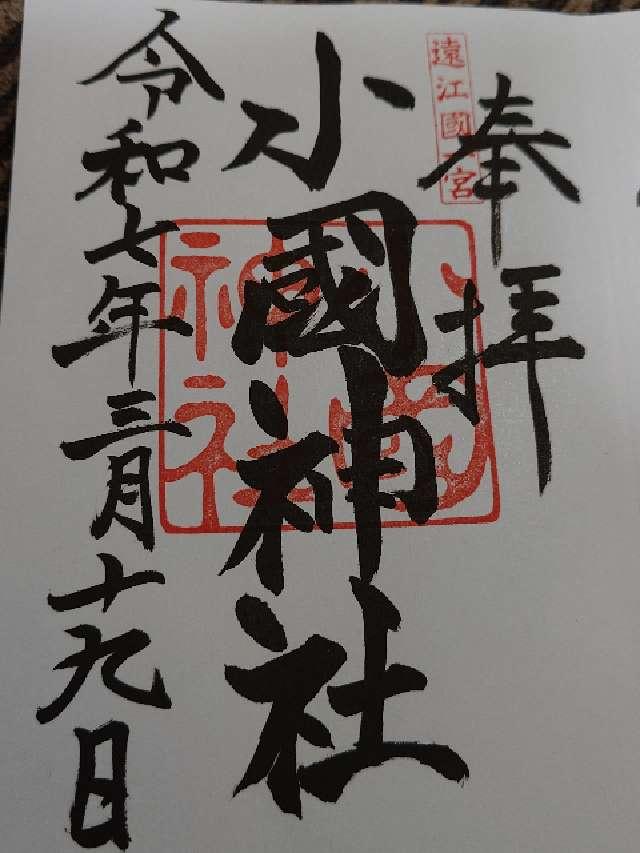 奉拝
遠江國一宮
小國神社
小國神社
令和七年三月十九日